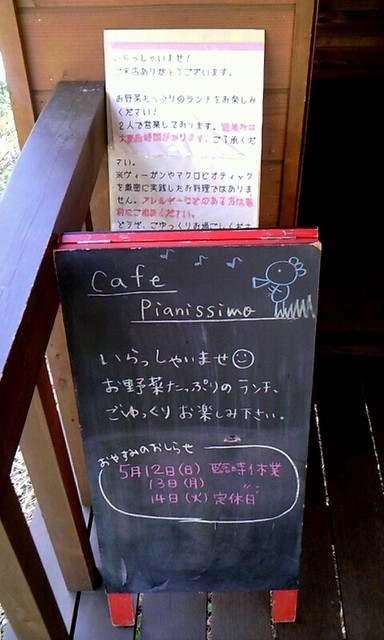 いらっしゃいませ!
ご来店ありがとうございます。
お野菜たっぷりのランチをお楽しみ
ください!
2人で営業しております。混雑時は
大変お時間がかかります。ご了承くだ
さい。
※ヴィーガンやマクロビオティック
を厳密に実践したお料理ではありま
せん。アレルギーなどのある方は事
前にご相談ください。
どうぞ、ごゆっくりお過ごしくださ
Cafe
Pianissimo
いらっしゃいませ
お野菜たっぷりの ランチ、
ごゆっくり お楽しみ下さい。
おやすみのおしらせ
5月12日(日) 臨時休業
13日(月) 〃
14日(火) 定休日